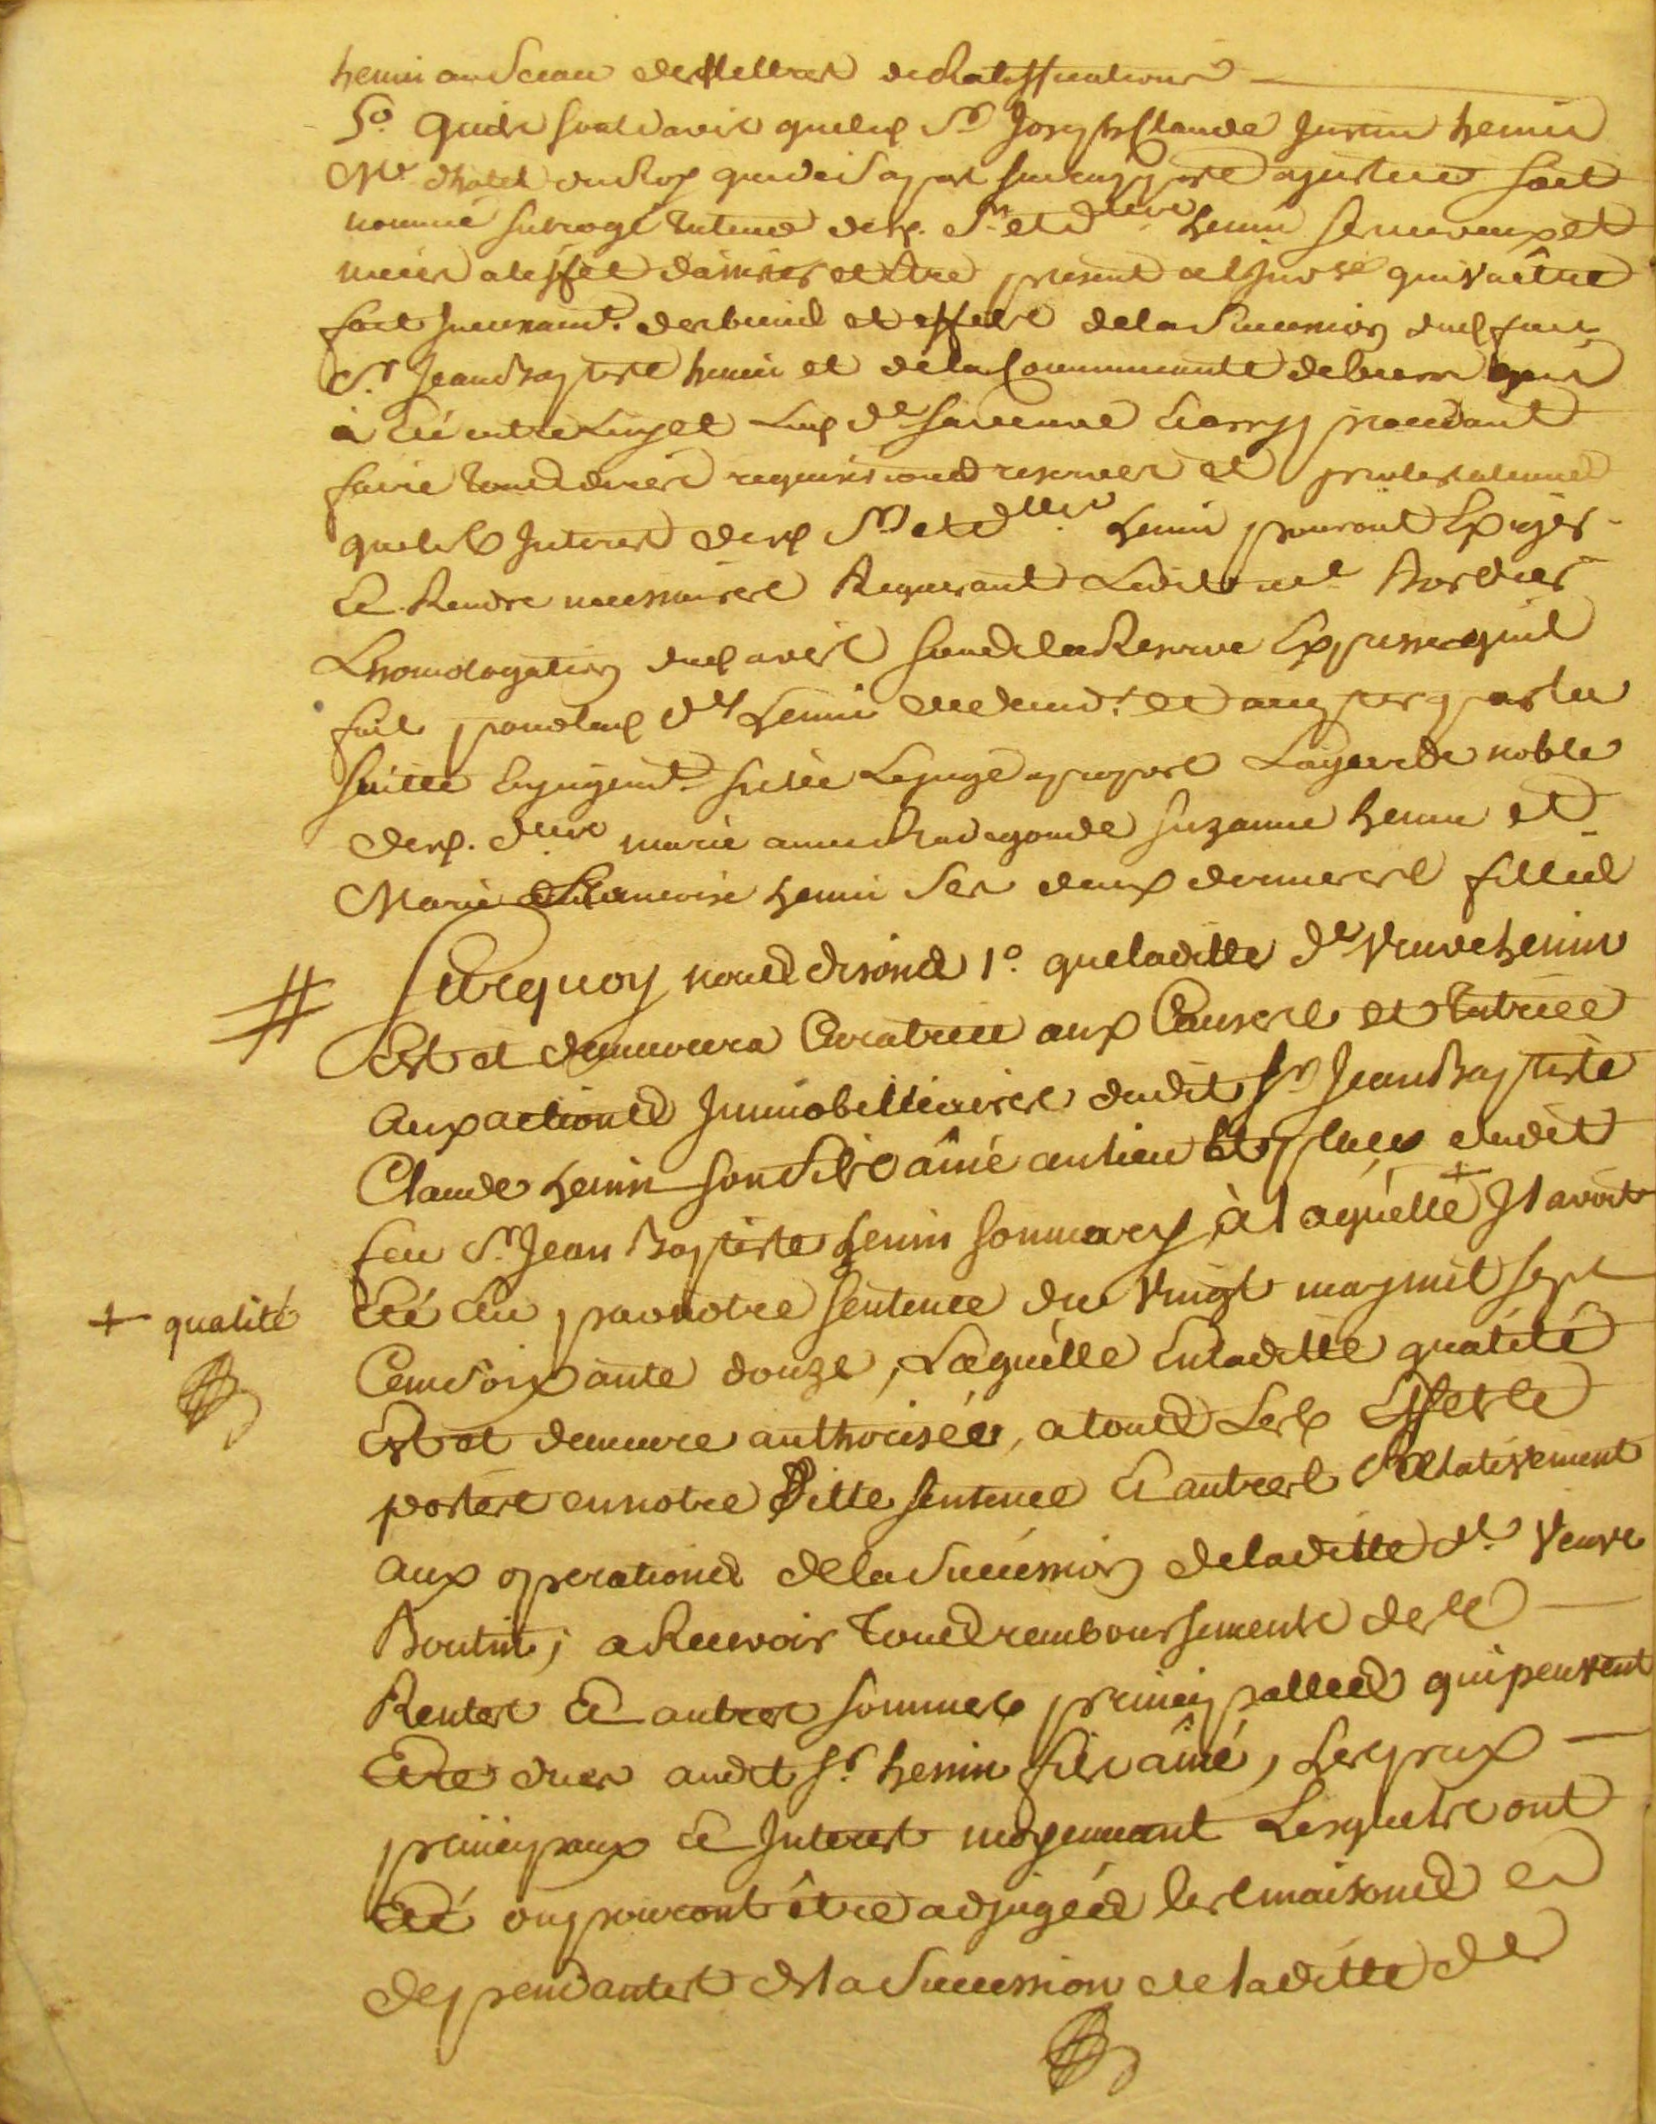 henin au Sceau desd lettres de Ratiffications
5º. Quils sont davis que led Sr. Joseph Claude Justin henin
Me. dhotel du Roy qui de Sa part soit
nommé subrogé tuteur desd. Srs. et dlles. henin ses neveux et
nieces a leffet dassister et être present a l qui va être
fait incessamt. des biens et effets de la Succession dud feu
Sr. Jean Baptiste henin et de la Communauté de biens qui
à Eté entre luy et Lad de. sa veuve Et en y procedant
faire tous dires requisitions reserves et protestations
que les Interest desd Srs. et dlles. henin pouront Exiger
Et Rendre necessaires Requerant Ledit me. Bordier
Lhomologation dud avis sous la Reserve Expresse quil
fait pour lad de. henin de demdr. et accepter par la
suitte En jugemt. si elle Le juge apropos La garde noble
desd. dlles. marie anne Radegonde Suzanne henin et
Marie Francoise henin Ses deux dernieres filles
# Surquoy nous disons 1º. que laditte de. Veuve henin
Est et demeurera Curatrice aux Causes et tutrice
aux actions Immobilliaires dudit Sr. Jean Baptiste
Claude henin son fils aîné au lieu Et place dudit
feu Sr. Jean Baptiste henin son mary, à laquelle + Il avoit
Eté Elu par notre Sentence du Vingt may mil sept
+ qualité
Cent Soixante douze, Laquelle En laditte qualité
Est et demeure authorisée, a tous Les Effets
portés en notre ditte Sentence Et autres Relativement
aux operations de la Succession de laditte de. Veuve
Boutin; a Recevoir tous remboursements des
Rentes Et autres sommes principalles qui peuvent
Etre dues audit Sr. henin fils aîné, Les prix
principaux Et Interest moyennant Lesquels ont
Eté ou pouront être adjugées les maisons
dependantes de la Succession de laditte de